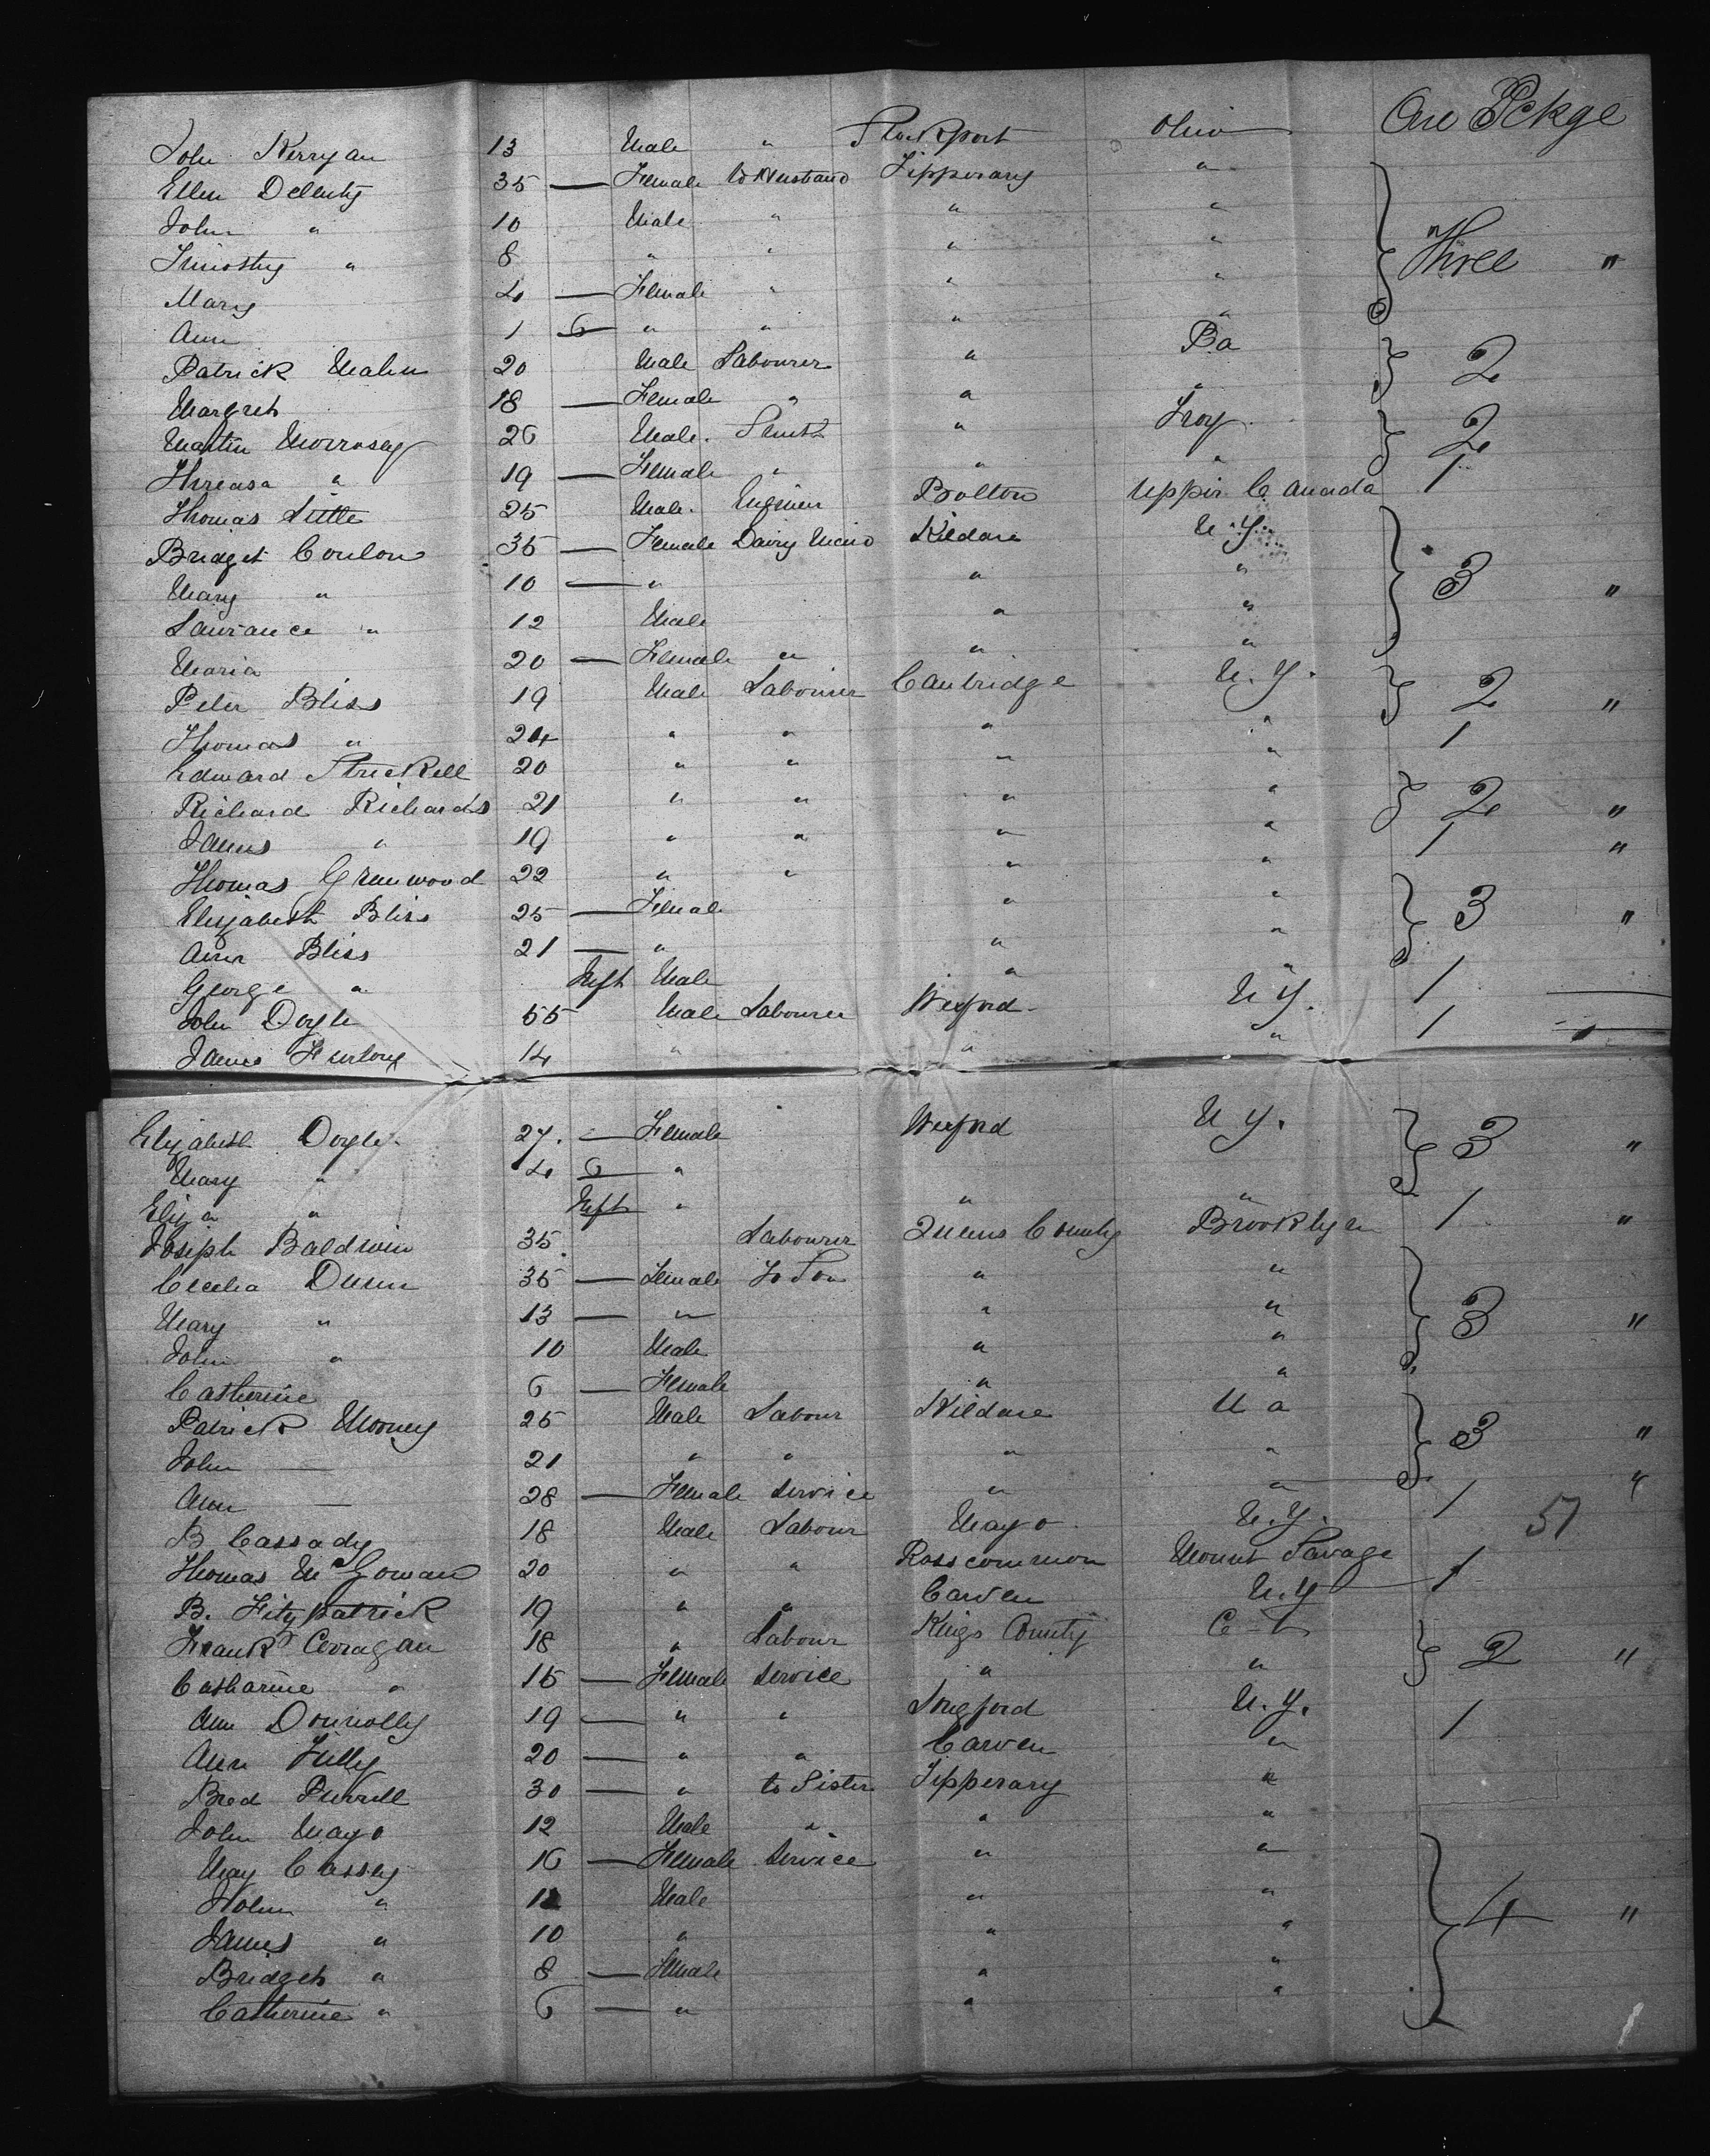 John Kerryan 13 Male " Stockport Ohio One Pckge
Ellen Dellenty 35 — Female to Husband Tipperary "
John " 10 Male " " "
Timothy " 8 " " " " Three "
Mary 4 — Female " " "
Ann 1 6 " " " "
Patrick Mahen 20 Male Labourer " Pa 2
Margret 18 — Female " " "
Martin Morrosey 26 Male Smith " Troy 2
Threasa " 19 — Female " " "
Thomas Little 25 Male Engineer Bolton Upper Canada 1
Bridget Conlon 35 — Female Dairy Maid Kildare N.Y.
Mary " 10 — " " " 3 "
Lawrance " 12 Male " "
Maria 20 — Female " " "
Peter Bliss 19 Male Labourer Cambridge N.Y. 2 "
Thomas " 24 " " " "
Edward Strickell 20 " " " " 1
Richard Richards 21 " " " " 2 "
James " 19 " " " "
Thomas Greenwood 22 " " " " 1 "
Elizabeth Bliss 25 — Female " " 3 "
Ann Bliss 21 — " " "
George " Inft Male " "
John Doyle 55 Male Labourer Wexford N.Y. 1
James Furlong 14 " " " 1
Elizabeth Doyle 27 — Female Wexford N.Y. 3 "
Mary " 4 6 "
Eliza " Inft " " "
Joseph Baldwin 35 Labourer Queens County Brooklyn 1 "
Cecelia Dunn 35 — Female To Son " "
Mary " 13 — " " " 3 "
John " 10 Male " "
Catherine 6 — Female " "
Patrick Mooney 25 Male Labour Kildare N a 3 "
John — 21 " " " "
Ann — 28 — Female Service " "
B Cassady 18 Male Labour Mayo N.Y. 1 "
51
Thomas McGowan 20 " " Rosscommon Mount Savage 1
B. Fitzpatrick 19 " " Carven N.Y 1
Frank Corragan 18 " Labour Kings County 2 "
Catharine " 15 — Female Service " "
Ann Donnolly 19 — " " Longford N.Y. 1
Ann Tully 20 — " " Carven "
Bred Purrell 30 — " to Sister Tipperary "
John Mayo 12 Male " " "
May Cassey 16 — Female Service " "
John " 12 Male " " 4 "
James " 10 " " "
Bridget " 8 — Female " "
Catherine " 6 — " " "